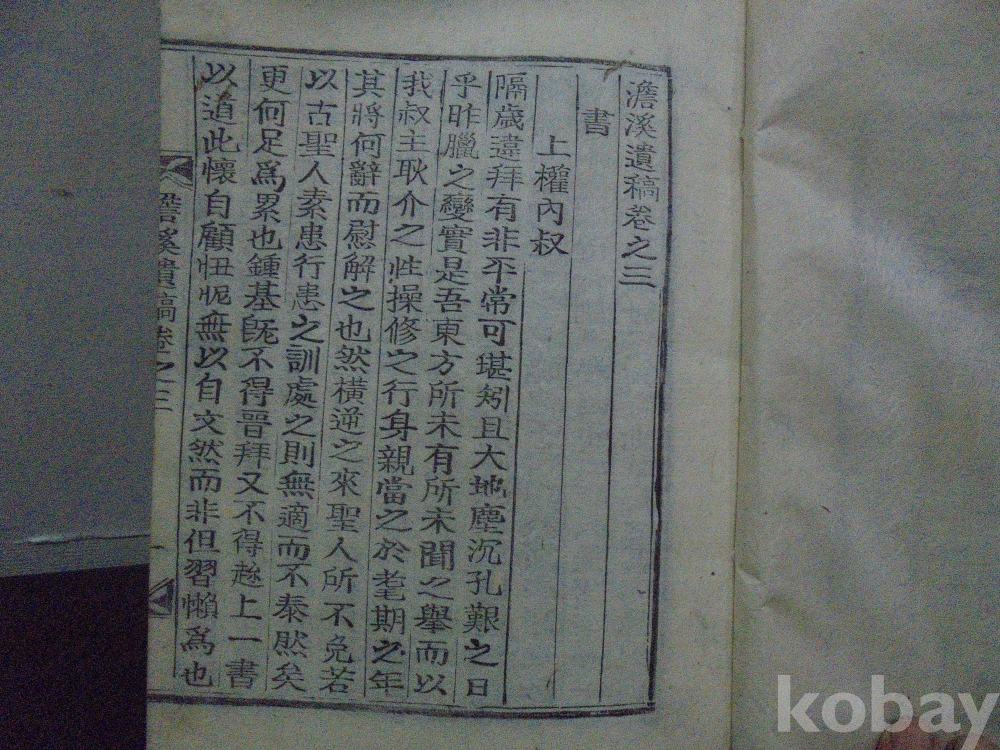 澹溪遺稿卷之三
書
上權內叔
隔歲違拜有非平常可堪矧且大地塵沉孔艱之日
乎昨臘之變實是吾東方所未有所未聞之擧而以
我叔主耿介之性操修之行身親當之於耄期之年
其將何辭而慰解之也然橫逆之來聖人所不免若
以古聖人素患行患之訓處之則無適而不泰然矣
更何足爲累也鍾基旣不得晉拜又不得趂上一書
以道此懷自顧忸怩無以自文然而非但習懶爲也
澹溪遺稿卷之三
kobay